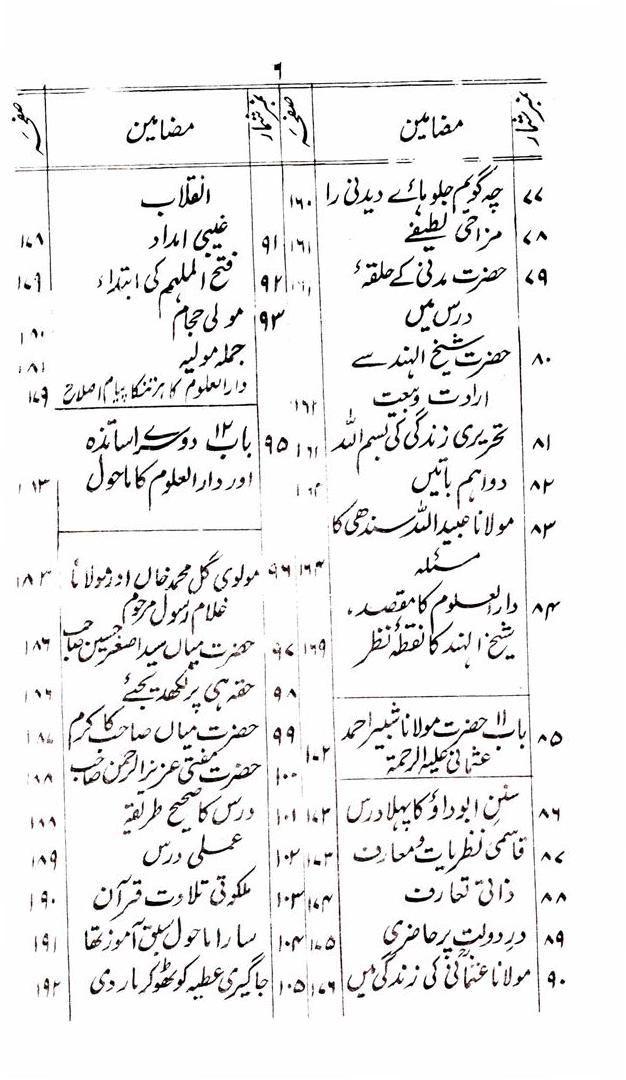 ۶
نمبر شمار مضامین صفحہ
۷۷ چہ گویم جلوہائے دیدنی را ۱۶۰
۷۸ مزاحی لطیفے ۱۶۱
۷۹ حضرت مدنی کے حلقۂ
درس میں
۸۰ حضرت شیخ الہند سے
ارادت وبیعت ۱۶۲
۸۱ تحریری زندگی کی بسم اللہ
۸۲ دو اہم باتیں
۸۳ مولانا عبید اللہ سندھی کا
مسئلہ ۱۶۴
۸۴ دارالعلوم کا مقصد،
شیخ الہند کا نقطۂ نظر ۱۶۹
۸۵ باب ۱۱ حضرت مولانا شبیر احمد
عثمانی علیہ الرحمۃ
۸۶ سنن ابوداؤ کا پہلا درس ۱۷۲
۸۷ قاسمی نظریات ومعارف ۱۷۳
۸۸ ذاتی تعارف ۱۷۴
۸۹ در دولت پر حاضری ۱۷۵
۹۰ مولانا عثمانیؒ کی زندگی میں ۱۷۶
نمبر شمار مضامین صفحہ
انقلاب
۹۱ غیبی امداد ۱۷۸
۹۲ فتح الملہم کی ابتداء ۱۷۹
۹۳ مولی حجام ۱۸۰
جملہ مولیہ ۱۸۱
دارالعلوم کا ہر تنکا پیام اصلاح ۱۷۹
۹۵ باب ۱۲ دوسرے اساتذہ
اور دارالعلوم کا ماحول ۱۸۳
۹۶ مولوی گل محمد خاں اور مولانا ۱۸۳
غلام رسول مرحوم
۹۷ حضرت میاں سید اصغر حسین صاحب ۱۸۶
۹۸ حقہ ہی پر لکھ دیجئے ۱۸۶
۹۹ حضرت میاں صاحب کا کرم ۱۸۷
۱۰۰ حضرت مفتی عزیز الرحمن صاحب ۱۸۸
۱۰۱ درس کا صحیح طریقہ ۱۸۸
۱۰۲ عملی درس ۱۸۹
۱۰۳ ملکوتی تلاوت قرآن ۱۹۰
۱۰۴ سارا ماحول سبق آموز تھا ۱۹۱
۱۰۵ جاگیری عطیہ کو ٹھوکر مار دی ۱۹۲